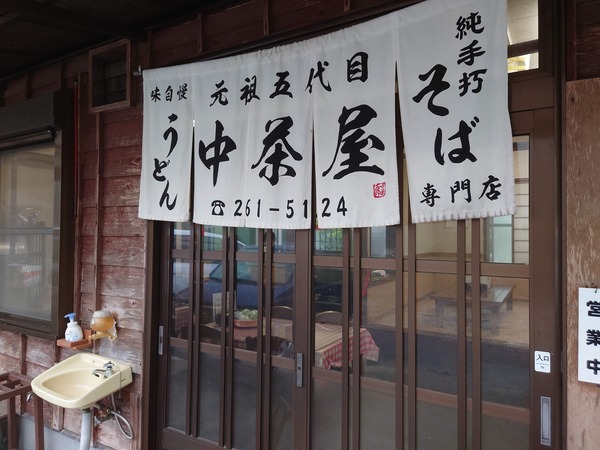 味自慢
うどん
元祖五代目
中茶屋
☎261-5124
純手打
そば
専門店
入口
営業中